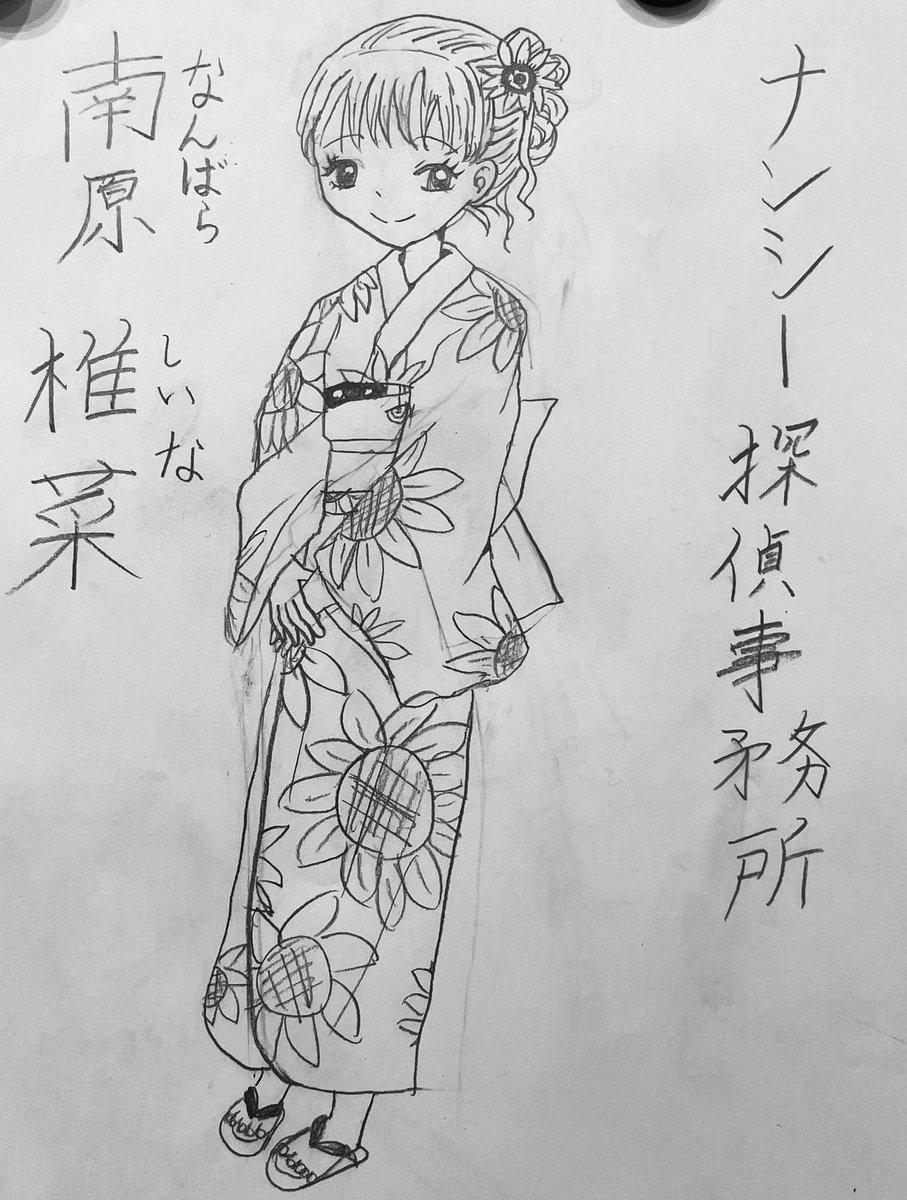 ナンシー探偵事務所
南原 椎菜
なんばら しいな